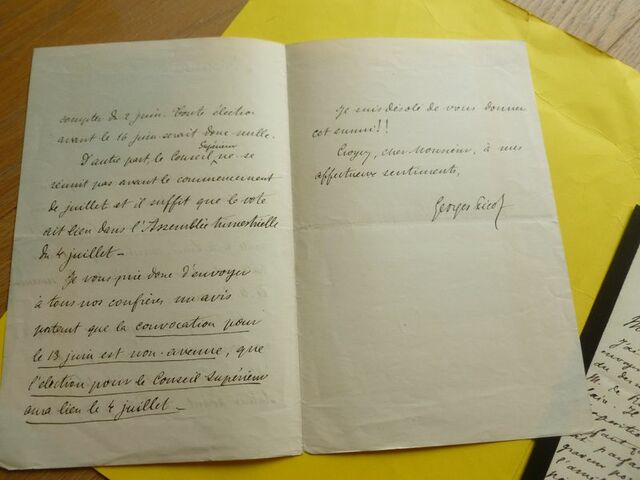 compter du 2 juin. Toute élection
avant le 16 juin serait donc nulle.
D'autre part le Conseil Supérieur ne se
réunit pas avant le commencement
de juillet et il suffit que le vote
ait lieu dans l'Assemblée trimestrielle
du 4 juillet –
Je vous prie donc d'envoyer
à tous nos confrères un avis
portant que la convocation pour
le 13 juin est non-avenue, que
l'élection pour le Conseil Supérieur
aura lieu le 4 juillet –
Je suis désolé de vous donner
cet ennui!!
Croyez, cher Monsieur, à mes
affectueux sentiments,
Georges Picot
M.
envoye
du
M. de